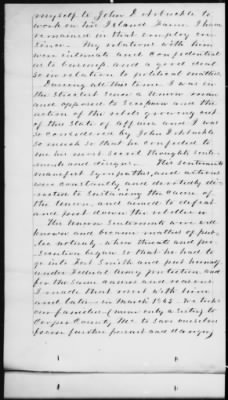 myself to John D Arbuckle to
work on his Island Farm. I have
remained in that employ ever
since. My relations with him
were intimate and confidential
as to business, and a good deal
so in relation to political matters.
During all that time I was in
the strictest sense a Union man
and opposed to Secession and the
action of the rebels governing out
of this State of affairs and I was
so considered by John D Arbuckle
so much so that he confided to
me his most secret thoughts senti-
ments and designs. His sentiments
manifest Sympathies, and actions
were constantly and devotedly di-
rected to sustaining the cause of
the Union, and aimed to defeat
and put down the rebellion.
His Union Sentiments were well
known and became matters of pub-
lic notoriety, when threats and per-
secution began so that he had to
go into Fort Smith and put himself
under Federal Army protection, and
for the same causes and reasons
I made that move with him
and later in March 1865. We take
our families (mine only a sister) to
Cooper County Mo. to save ourselves
from further pursuit and danger,